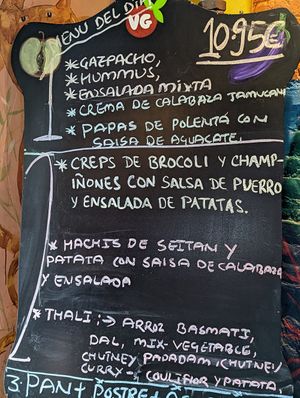 MENU DEL DIA
VG
10.95€
* GAZPACHO,
* HUMMUS,
* ENSALADA MIXTA
* CREMA DE CALABAZA TAMUCANI
* PAPAS DE POLENTA CON
SALSA DE AGUACATE.
* CREPS DE BROCOLI Y CHAMP-
IÑONES CON SALSA DE PUERRO
Y ENSALADA DE PATATAS.
* HACHIS DE SEITAN Y
PATATA CON SALSA DE CALABAZA
Y ENSALADA
* THALI :→ ARROZ BASMATI,
DAL, MIX-VEGETABLE,
CHUTNEY PAPADAM (CHUTNEY
CURRY-, COULIFLOR Y PATATA,
3. PAN + POSTRE +